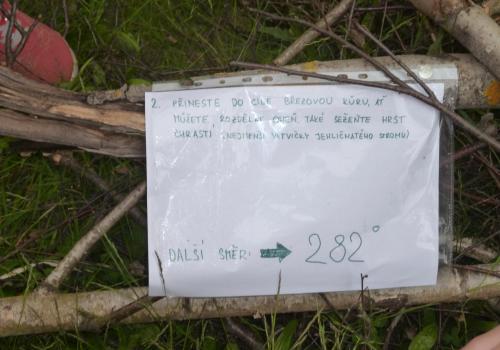 2. PŘINESTE DO CÍLE BŘEZOVOU KŮRU, AŤ
MŮŽETE ROZDĚLAT OHEŇ. TAKÉ SEŽEŇTE HRST
CHRASTÍ (NEJMENŠÍ VĚTVIČKY JEHLIČNATÉHO STROMU)
DALŠÍ SMĚR: → 282°